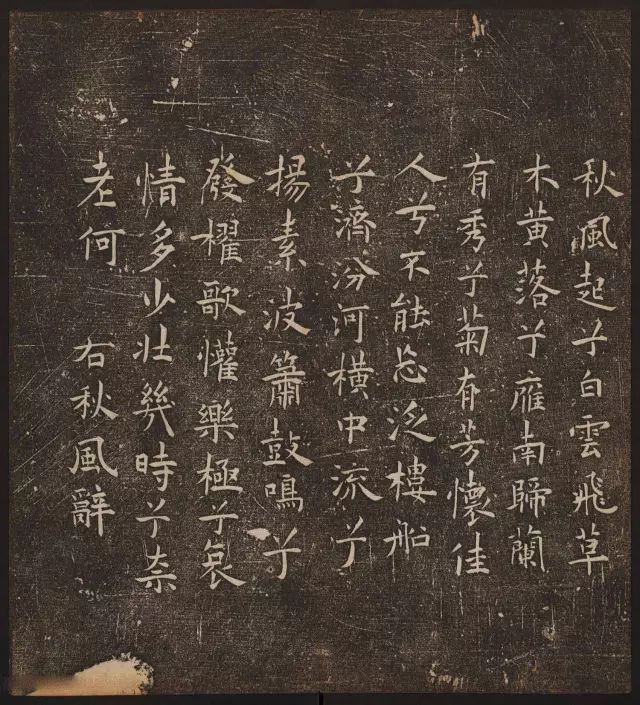 秋風起兮白雲飛草
木黄落兮雁南歸蘭
有秀兮菊有芳懷佳
人兮不能忘泛樓船
兮濟汾河横中流兮
揚素波簫鼓鳴兮
發櫂歌懽樂極兮哀
情多少壯幾時兮奈
老何 右秋風辭